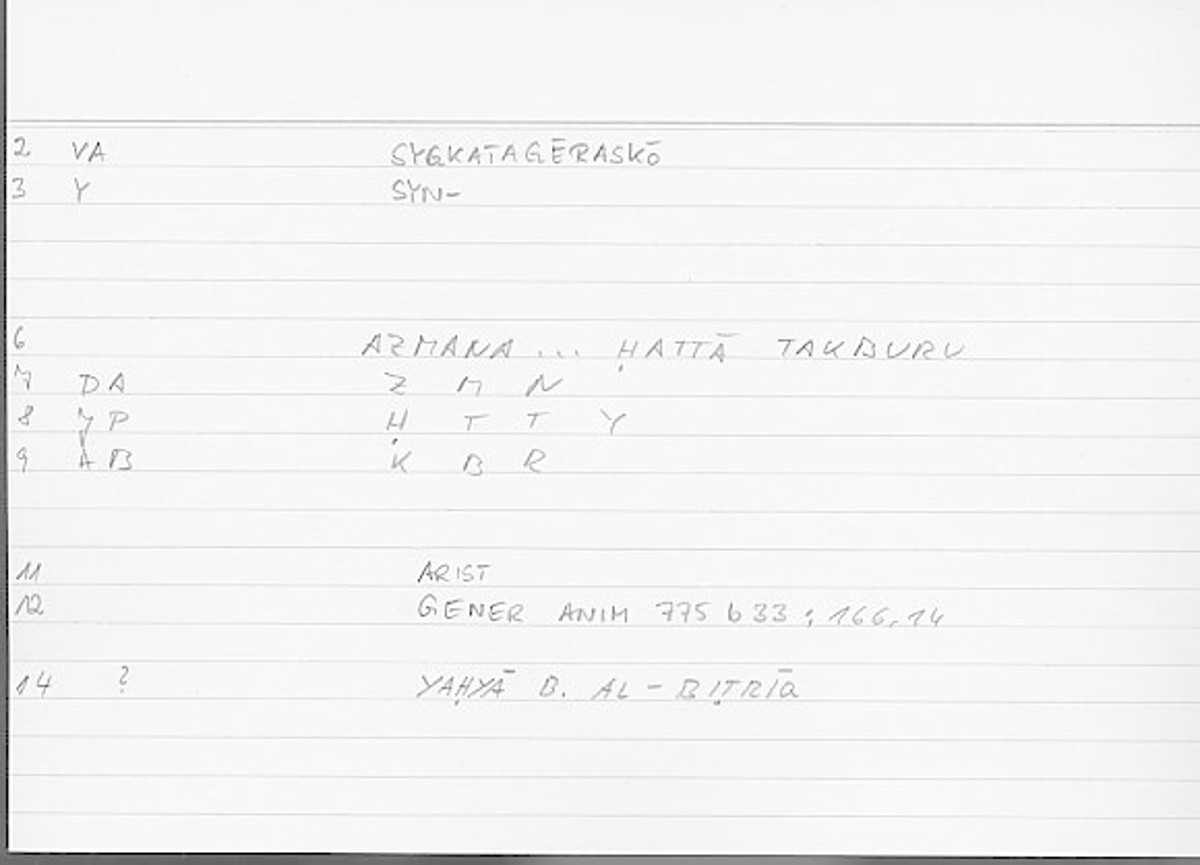 2 VA SYGKATAGĒRASKŌ
3 Y SYN-
6 AZMANA ... ḤATTĀ TAKBURU
7 DA Z M N
8 JP Ḥ T T Y
9 AB K B R
11 ARIST
12 GENER ANIM 775 b 33 ; 166,14
14 ? YAḤYĀ B. AL-BIṬRĪQ